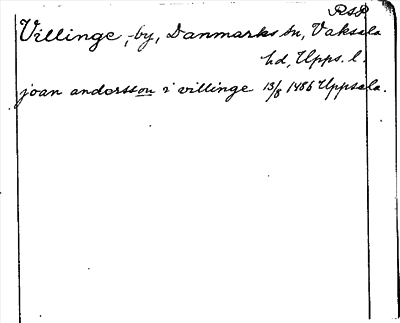 RSP
Villinge, -by, Danmarks sn, Vaksala
hd, Upps. l.
joan andersson i villinge 13/8 1486 Uppsala.